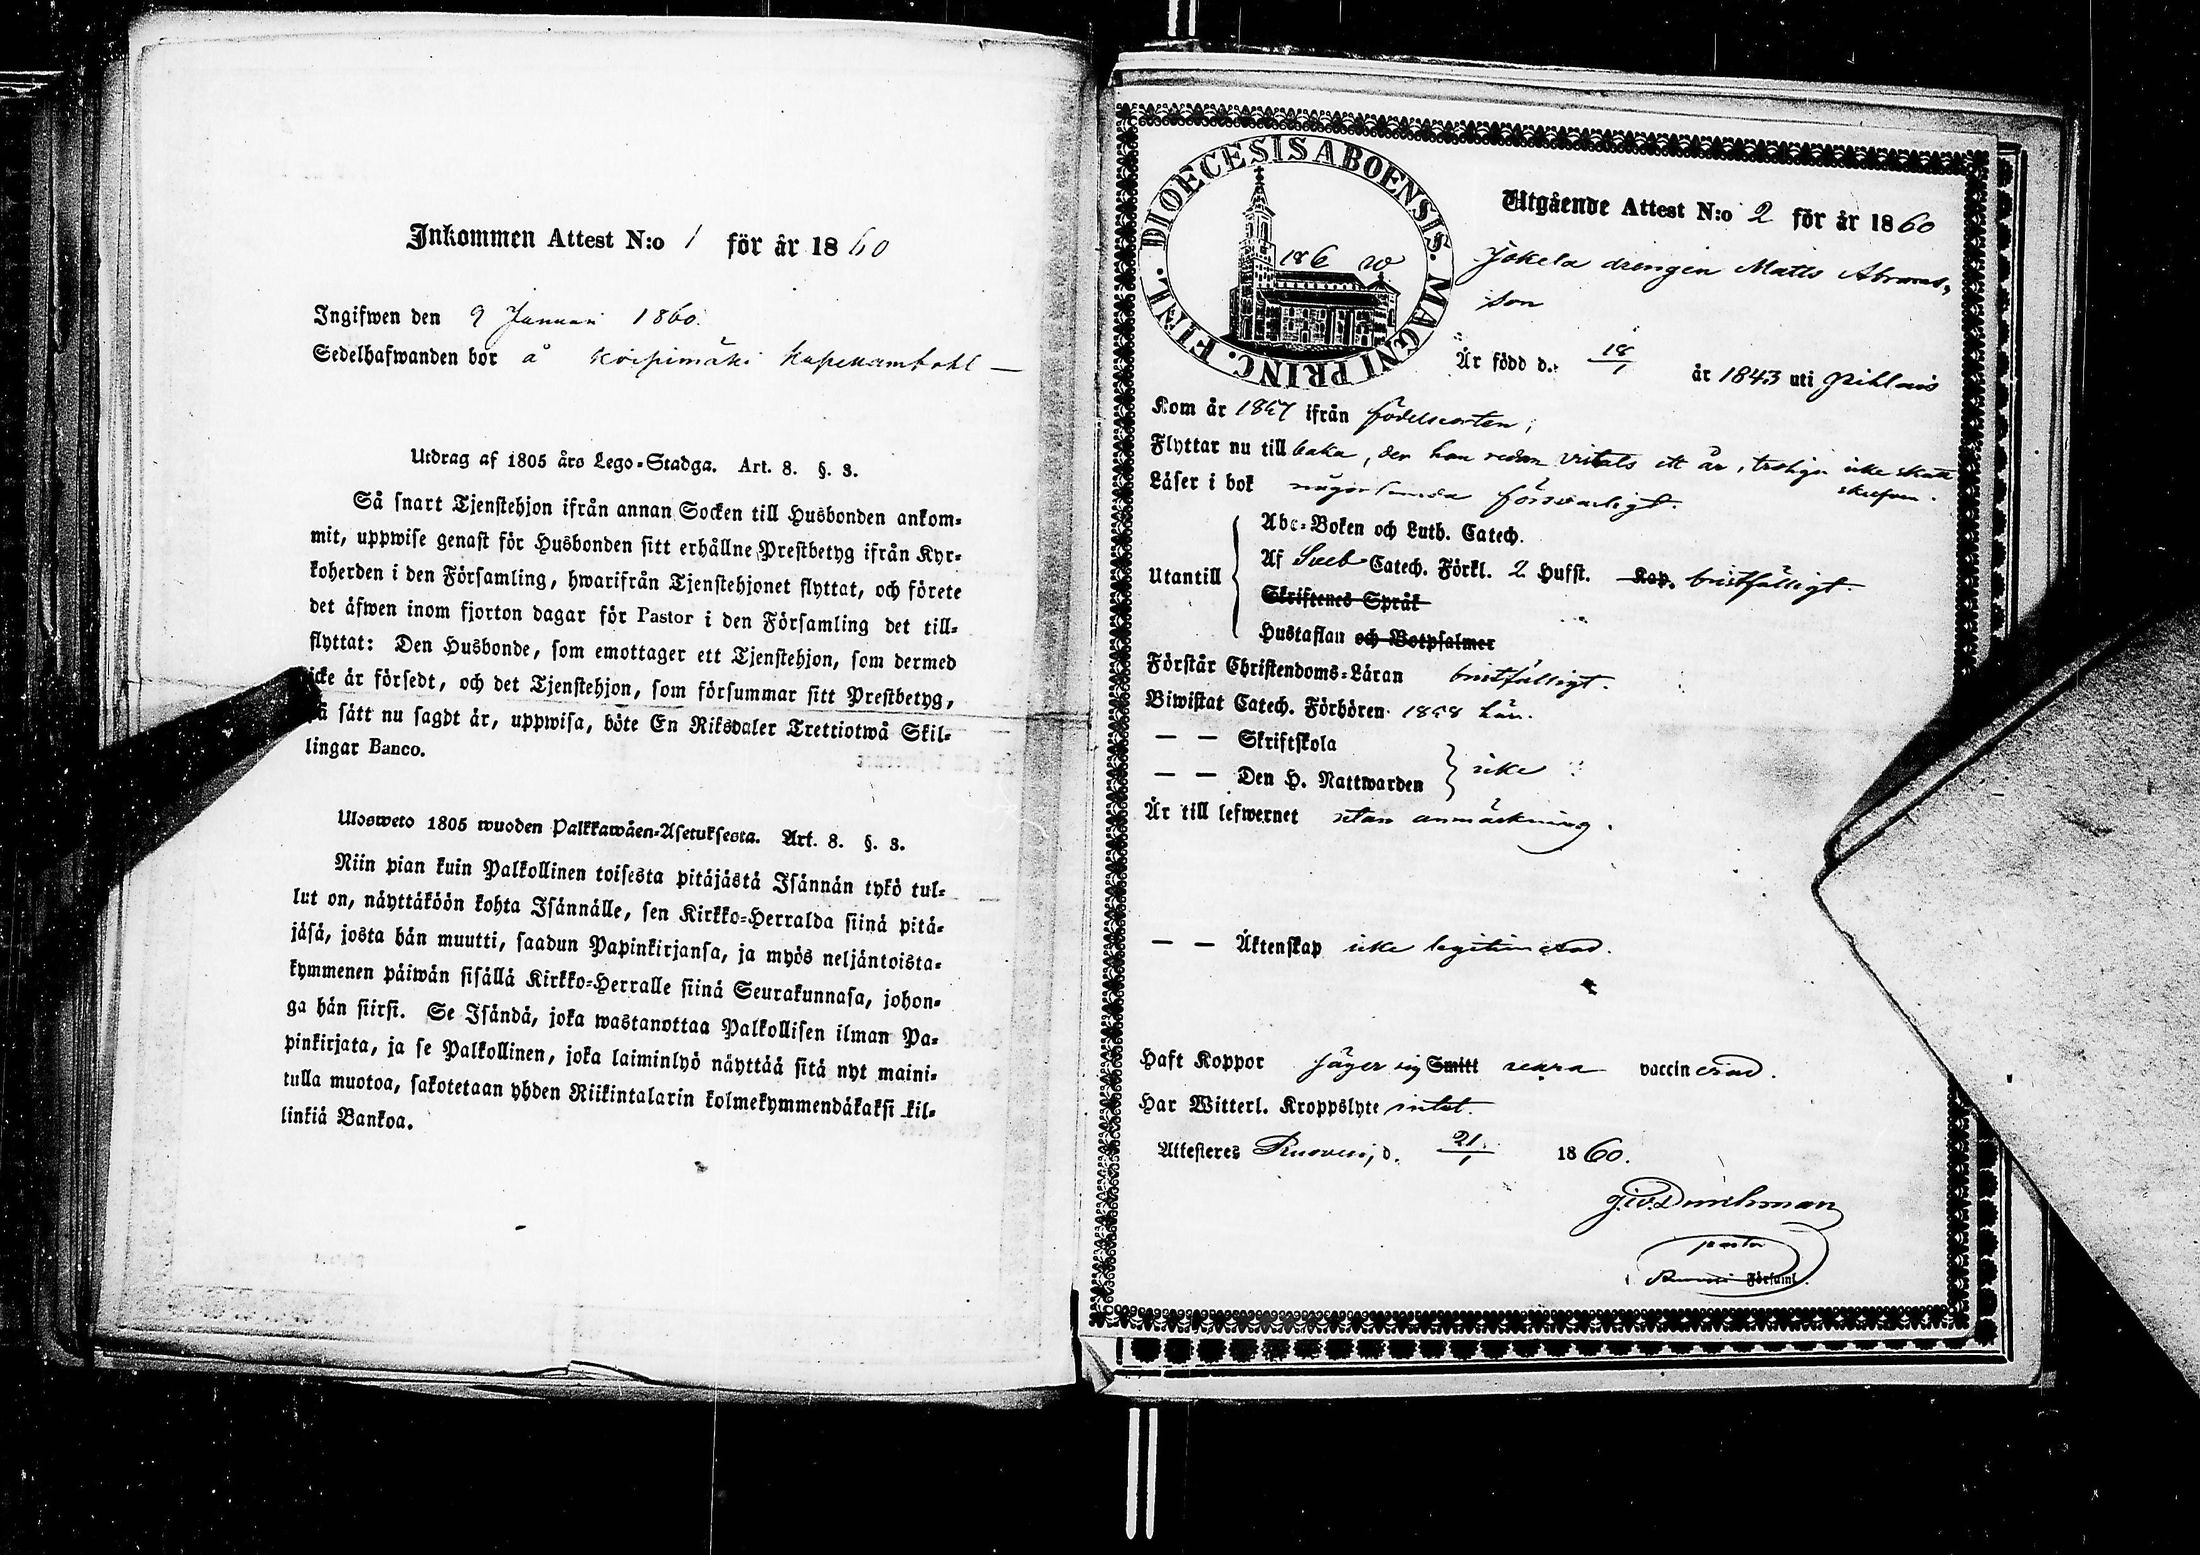 Inkommen Attest N:o 1 för år 1860
Ingifwen den 9 Januari 1860.
Sedelhafwanden bor å
Utdrag af 1805 års Lego-Stadga. Art. 8. §. 3.
Så snart Tjenstehjon ifrån annan Socken till Husbonden ankom-
mit, uppwise genast för Husbonden sitt erhållne Prestbetyg ifrån Kyr-
koherden i den Församling, hwarifrån Tjenstehjonet flyttat, och förete
det äfwen inom fjorton dagar för Pastor i den Församling det till-
flyttat: Den Husbonde, som emottager ett Tjenstehjon, som dermed
icke är försedt, och det Tjenstehjon, som försummar sitt Prestbetyg,
på sätt nu sagdt är, uppwisa, böte En Riksdaler Trettiotwå Skil-
lingar Banco.
Ulosweto 1805 wuoden Palkkawäen-Asetuksesta. Art. 8. §. 3.
Niin pian kuin Palkollinen toisesta pitäjästä Isännän tykö tul-
lut on, näyttäköön kohta Isännälle, sen Kirkko-Herralda siinä pitä-
jäsä, josta hän muutti, saadun Papinkirjansa, ja myös neljäntoista-
kymmenen päiwän sisällä Kirkko-Herralle siinä Seurakunnasa, johon-
ga hän siirsi. Se Isändä, joka wastanottaa Palkollisen ilman Pa-
pinkirjata, ja se Palkollinen, joka laiminlyö näyttää sitä nyt maini-
tulla muotoa, sakotetaan yhden Riikintalarin kolmekymmendäkaksi kil-
linkiä Bankoa.
DIOECESIS ABOENSIS. MAGNI PRINC. FINL.
Utgående Attest N:o 2 för år 1860
Jokela drengen Matts Abrams-
son
Är född d. 18/1 år 1843 uti
Kom år 1857 ifrån födelseorten;
Flyttar nu till baka, der han redan vistats ett år, troligen icke skatt
skrefven.
Läser i bok någorlunda försvarligt.
Utantill
Abc-Boken och Luth. Catech.
Af Sveb Catech. Förkl. 2 Hufst. Kap. bristfälligt.
Skriftenes Språk
Hustaflan och Botpsalmer
Förstår Christendoms-Läran bristfälligt.
Biwistat Catech. Förhören 1858 här.
— — Skriftskola
— — Den H. Nattwarden icke
Är till lefwernet utan anmärkning.
— — Äktenskap icke legitimerad.
Haft Koppor säger sig Smitt vara vaccinerad.
Har Witterl. Kroppslyte intet.
Attesteres d. 21/1 1860.
pastor
Församl.